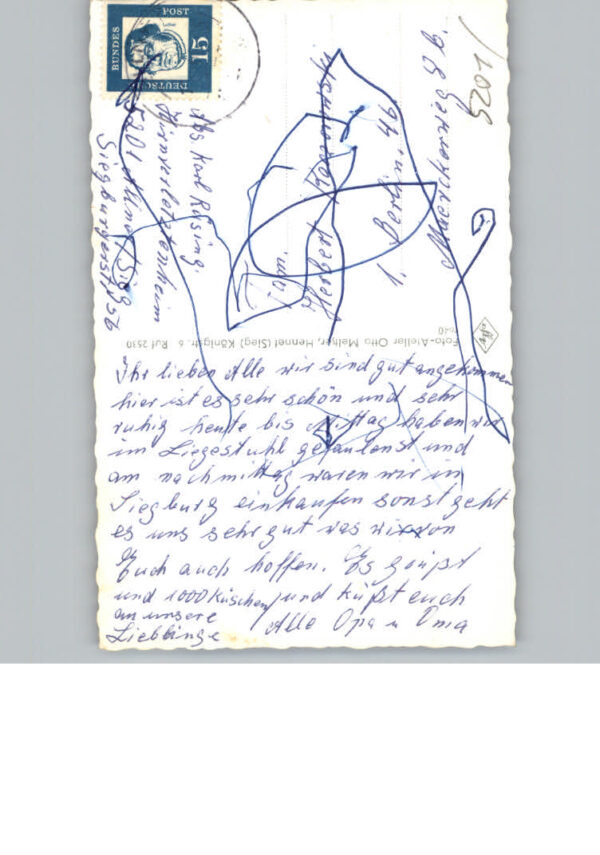 Ihr lieben Alle wir sind gut angekommen
hier ist es sehr schön und sehr
ruhig heute bis Mittag haben wir
im Liegestuhl gefaulenst und
am nachmittag waren wir in
Siegburg einkaufen sonst geht
es uns sehr gut was wir von
Euch auch hoffen. Es grüßt
und 1000 Küschen und küßt euch
an unsere Alle Opa u Oma
Lieblinge
Abs Karl Rising.
Hirnverletztenheim
5201 Sieg
Siegburgerst. 156
Fam.
Herbert
1. Berlin. 46
8 b.
5201/
DEUTSCHE
BUNDES
POST
15
Foto-Atelier Otto Melher, Hennef (Sieg) Königstr. 6 Ruf 2530